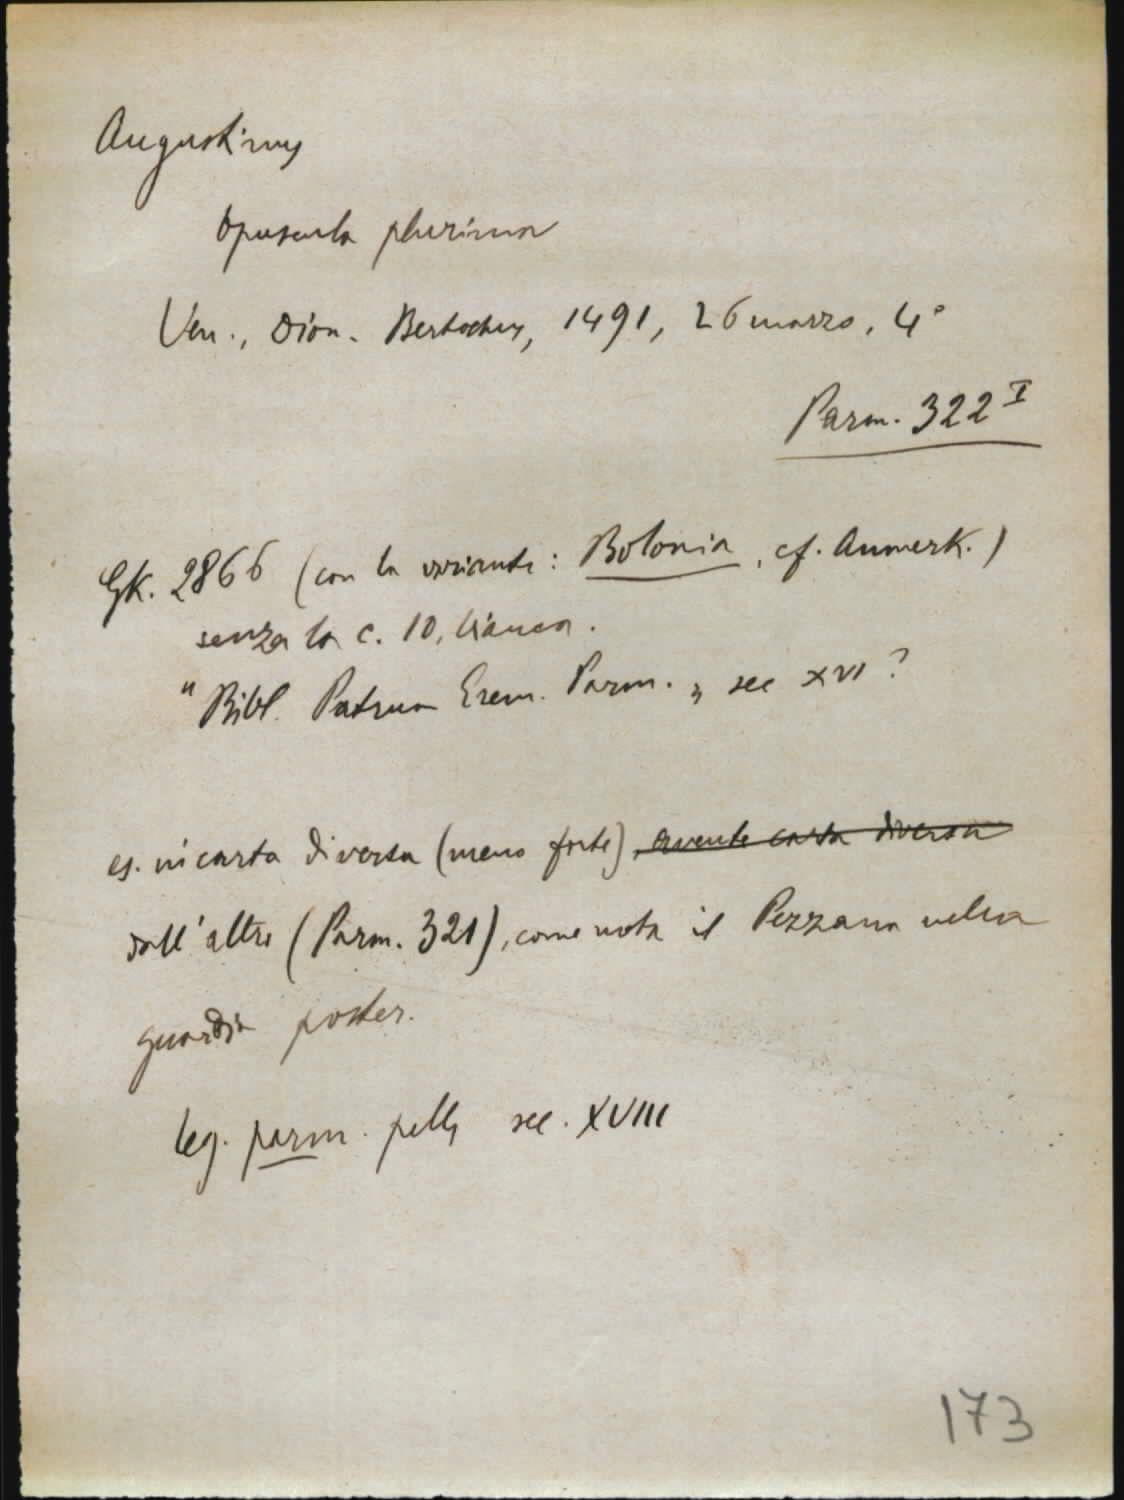 Augustinus
Opuscula plurima
Ven., Dion. Bertochus, 1491, 26 marzo, 4°
Parm. 322 I
GK. 2866 (con la variante: Bolonia, cf. Anmerk.)
senza la c. 10, bianca.
"Bibl. Patrum Erem. Parm. „ sec XVI ?
es. in carta diversa (meno forte), avente carta diversa
dall'altro (Parm. 321), come nota il Pezzana nella
guardia poster.
leg. parm. pelle sec. XVIII
173